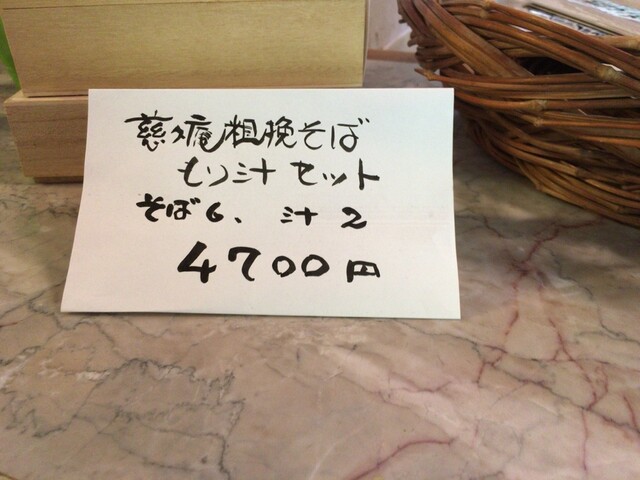 慈久庵粗挽そば
もり汁セット
そば6、汁2
4700円